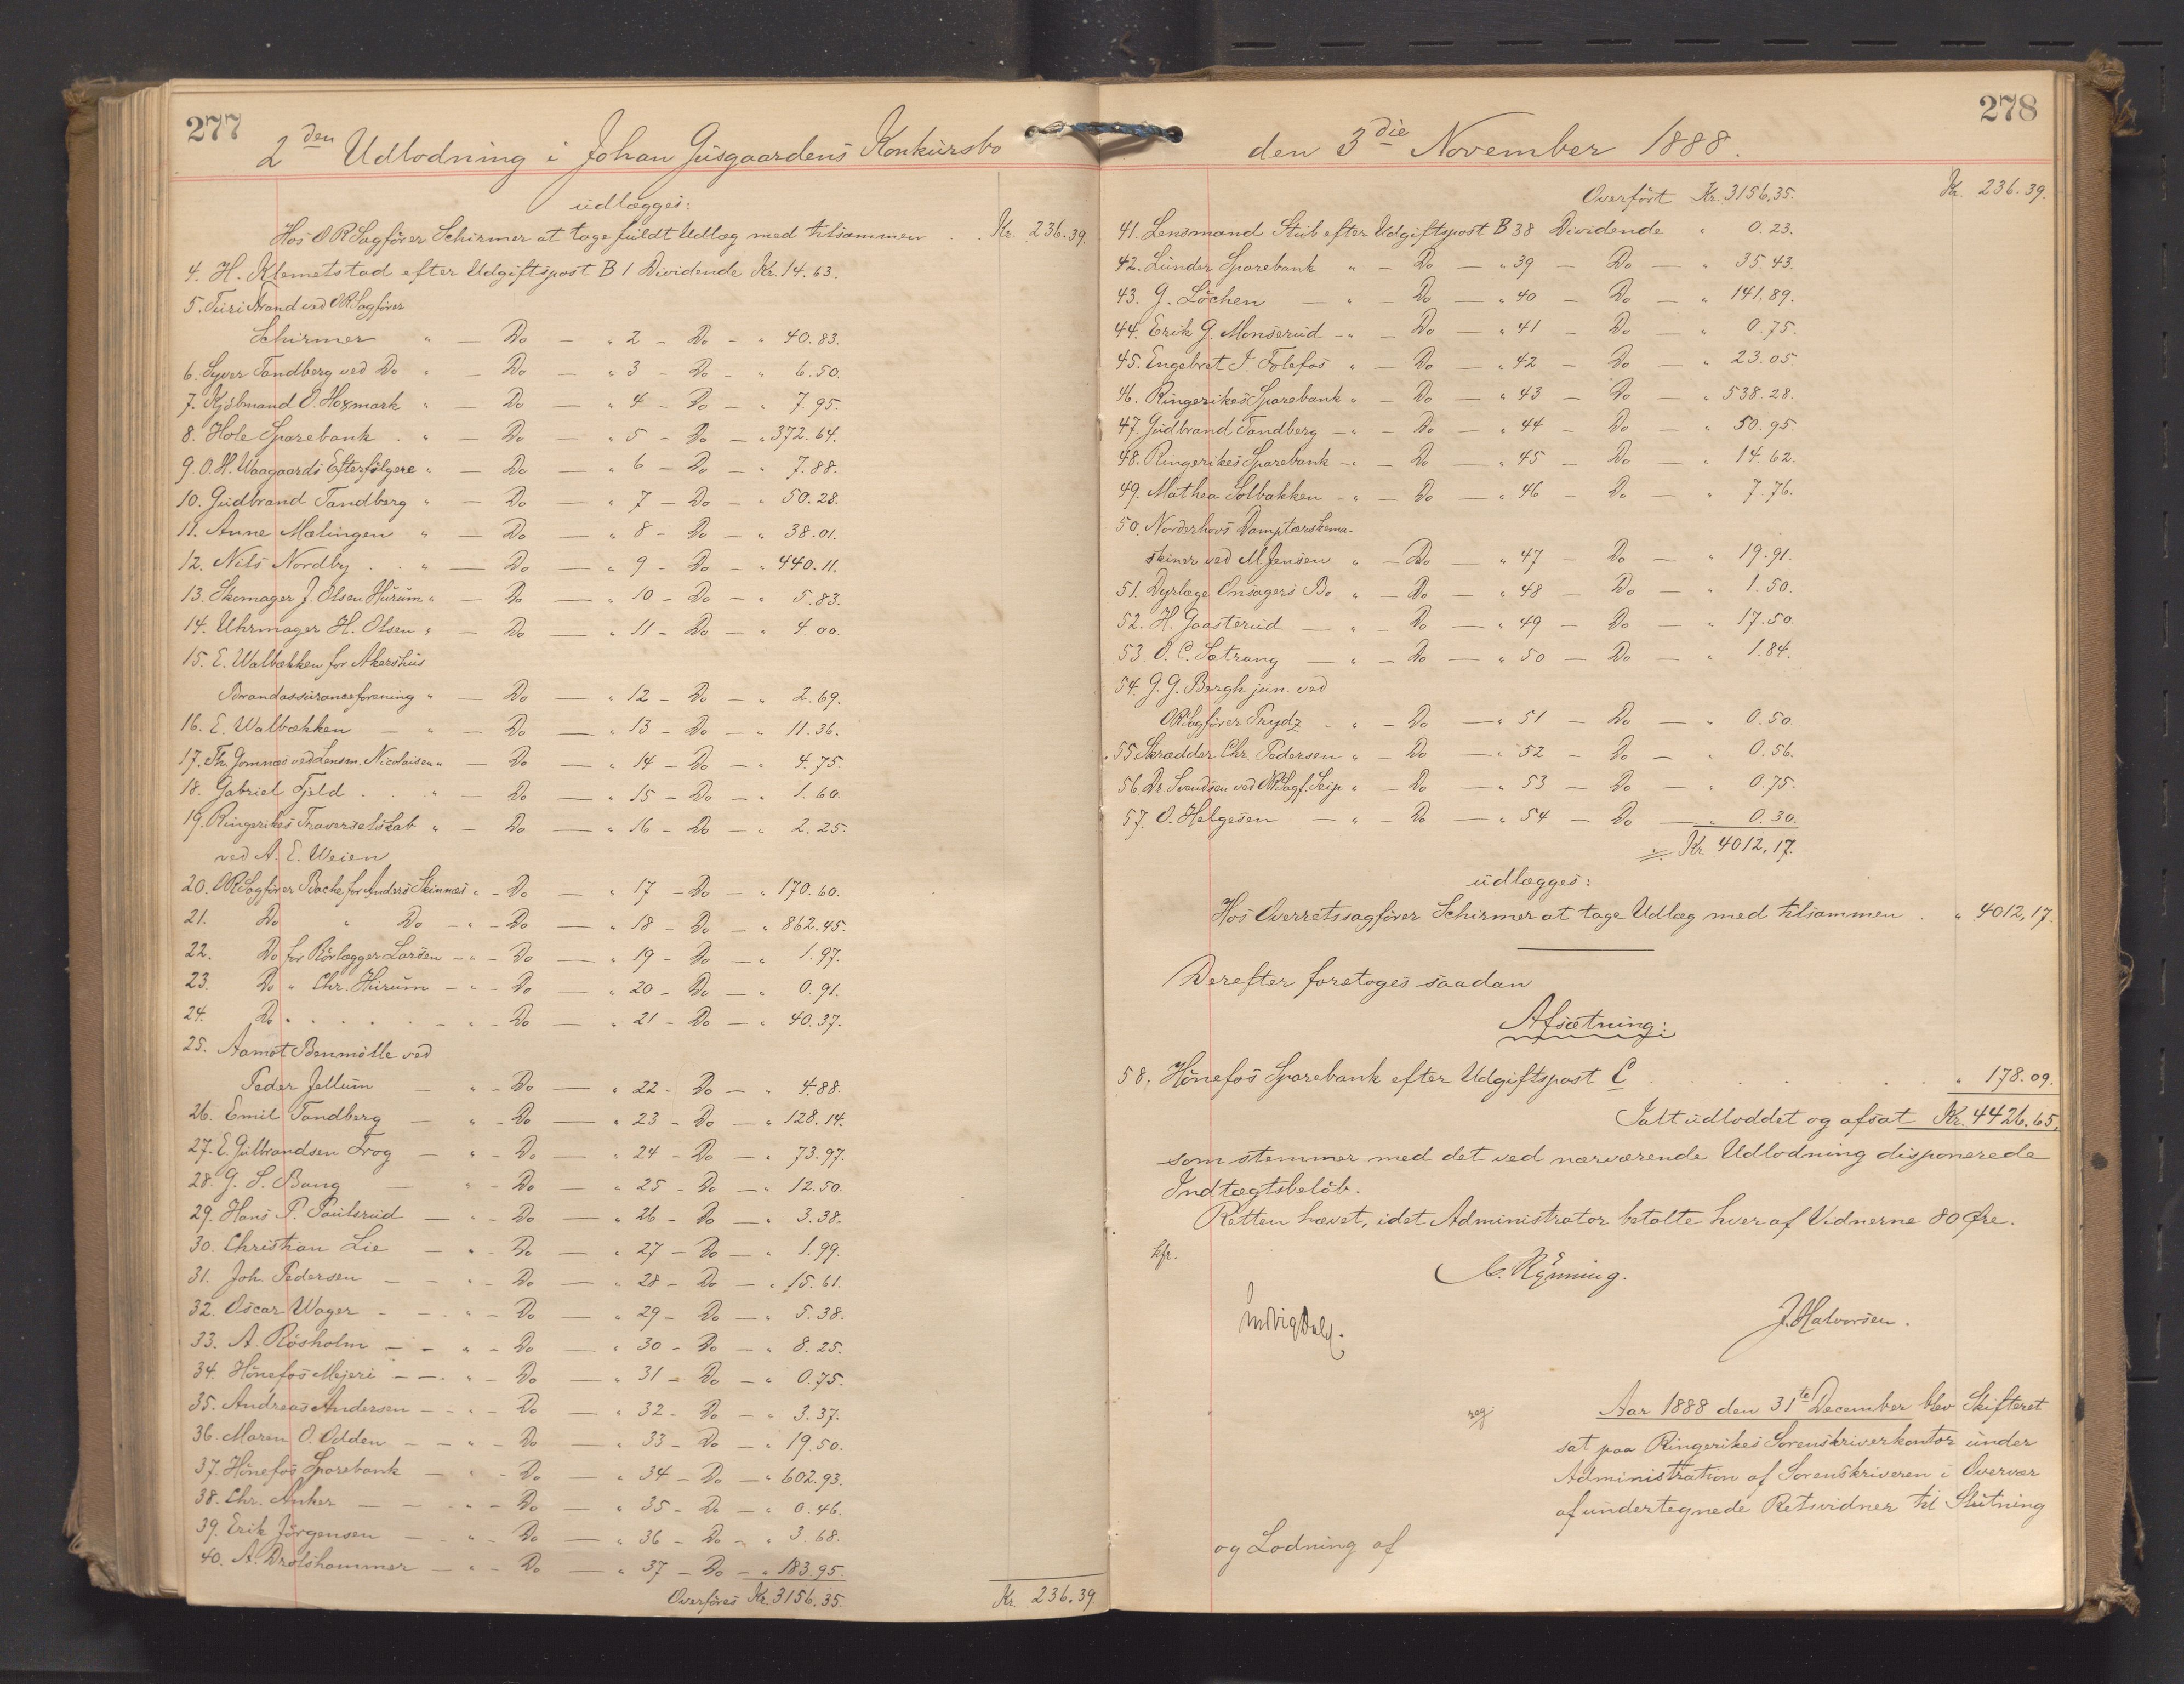 277
2den Udlodning i Johan Gusgaardens Konkursbo
udlægges:
Hos ORSagförer Schirmer at tage fuldt Udlæg med tilsammen . . Kr. 236.39.
4. H. Klemetstad efter Udgiftspost B 1 Dividende Kr. 14.63.
5. Turi Strand ved ORSagförer
Schirmer " — Do — " 2 — Do — " 40.83.
6. Syver Tandberg ved Do " — Do — " 3 — Do — " 6.50.
7. Kjöbmand O. Hoxmark " — Do — " 4 — Do — " 7.95.
8. Hole Sparebank . " — Do — " 5 — Do — " 372.64.
9. O. H. Waagaards Efterfölgere " — Do — " 6 — Do — " 7.88.
10. Gudbrand Tandberg " — Do — " 7 — Do — " 50.28.
11. Anne Mælingen " — Do — " 8 — Do — " 38.01.
12. Nils Nordby . . " — Do — " 9 — Do — " 440.11.
13. Skomager J. Olsen Hurum " — Do — " 10 — Do — " 5.83.
14. Uhrmager H. Olsen " — Do — " 11 — Do — " 4.00.
15. E. Walbækken for Akershus
Brandassuranceforening " — Do — " 12 — Do — " 2.69.
16. E. Walbækken — " — Do — " 13 — Do — " 11.36.
17. Th. Gomnæs ved Lensm. Nicolaisen " — Do — " 14 — Do — " 4.75.
18. Gabriel Fjeld . . " — Do — " 15 — Do — " 1.60.
19. Ringerikes Traverselskab " — Do — " 16 — Do — " 2.25.
ved A. E. Weien
20. ORSagförer Bache for Anders Skinnes " — Do — " 17 — Do — " 170.60.
21. Do " Do — " — Do — " 18 — Do — " 862.45.
22. Do for Rörlægger Larsen — " — Do — " 19 — Do — " 1.97.
23. Do " Chr. Hurum — " — Do — " 20 — Do — " 0.91.
24. Do " . . . . . — " — Do — " 21 — Do — " 40.37.
25. Aamot Benmölle ved
Peder Jellum — " — Do — " 22 — Do — " 4.88.
26. Emil Tandberg — " — Do — " 23 — Do — " 128.14.
27. E. Gulbrandsen Frog — " — Do — " 24 — Do — " 73.97.
28. G. S. Bang — " — Do — " 25 — Do — " 12.50.
29. Hans P. Paulsrud — " — Do — " 26 — Do — " 3.38.
30. Christian Lie — " — Do — " 27 — Do — " 1.99.
31. Joh. Pedersen — — " — Do — " 28 — Do — " 15.61.
32. Oscar Wager — — " — Do — " 29 — Do — " 5.38.
33. A. Rösholm — — " — Do — " 30 — Do — " 8.25.
34. Hönefos Mejeri — — " — Do — " 31 — Do — " 0.75.
35. Andreas Andersen — — " — Do — " 32 — Do — " 3.37.
36. Maren O. Odden — — " — Do — " 33 — Do — " 19.50.
37. Hönefos Sparebank — " — Do — " 34 — Do — " 602.93.
38. Chr. Anker — — " — Do — " 35 — Do — " 0.46.
39. Erik Jörgensen — " — Do — " 36 — Do — " 3.68.
40. A. Drolshammer — " — Do — " 37 — Do — " 183.95.
Overföres Kr. 3156.35. Kr. 236.39.
278
den 3die November 1888.
Overfört Kr. 3156,35. Kr. 236.39.
41. Lensmand Stub efter Udgiftspost B 38 Dividende " 0.23.
42. Lunder Sparebank " — Do — " 39 — Do — " 35.43.
43. G. Löchen — " — Do — " 40 — Do — " 141.89.
44. Erik G. Monserud — " — Do — " 41 — Do — " 0.75.
45. Engebret I. Folefos " — Do — " 42 — Do — " 23.05.
46. Ringerikes Sparebank " — Do — " 43 — Do — " 538.28.
47. Gudbrand Tandberg — " — Do — " 44 — Do — " 50.95.
48. Ringerikes Sparebank — " — Do — " 45 — Do — " 14.62.
49. Mathea Solbakken — " — Do — " 46 — Do — " 7.76.
50. Norderhovs Damptærskema-
skiner ved M. Jensen " — Do — " 47 — Do — " 19.91.
51. Dyrlæge Onsagers Bo " — Do — " 48 — Do — " 1.50.
52. H. Gaasterud — " — Do — " 49 — Do — " 17.50.
53. O. C. Sætrang — " — Do — " 50 — Do — " 1.84.
54. G. G. Bergh jun. ved
ORSagförer Prydz — " — Do — " 51 — Do — " 0.50.
55 Skrædder Chr. Pedersen " — Do — " 52 — Do — " 0.56.
56 Dr. Svendsen ved ORSagf. Seip " — Do — " 53 — Do — " 0.75.
57. O. Helgesen — " — Do — " 54 — Do — " 0.30.
Kr. 4012,17.
udlægges:
Hos Overretssagförer Schirmer at tage Udlæg med tilsammen . " 4012,17.
Derefter foretoges saadan
Afsætning:
58. Hönefos Sparebank efter Udgiftspost C . . . . . . . " 178.09.
Ialt udloddet og afsat Kr. 4426.65.
som stemmer med det ved nærværende Udlodning disponerede
Indtægtsbelöb.
Retten hævet, idet Administrator betalte hver af Vidnerne 80 Øre.
C. Rynning.
J. Halvorsen.
Aar 1888 den 31te December blev Skifteret
sat paa Ringerikes Sorenskriverkontor under
Administration af Sorenskriveren i Overvær
af undertegnede Retsvidner til Slutning
og Lodning af